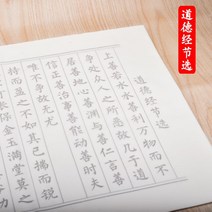 道德经节选
道德经节选
上善若水水善利万物而不
争处众人之所恶故几于道
居善地心善渊与善仁言善
信正善治事善能动善时夫
唯不争故无尤
持而盈之不如其已揣而锐
长保金玉满堂莫之